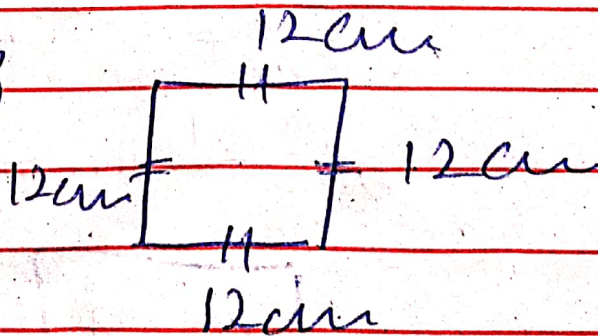 12cm
12cm
12cm
12cm